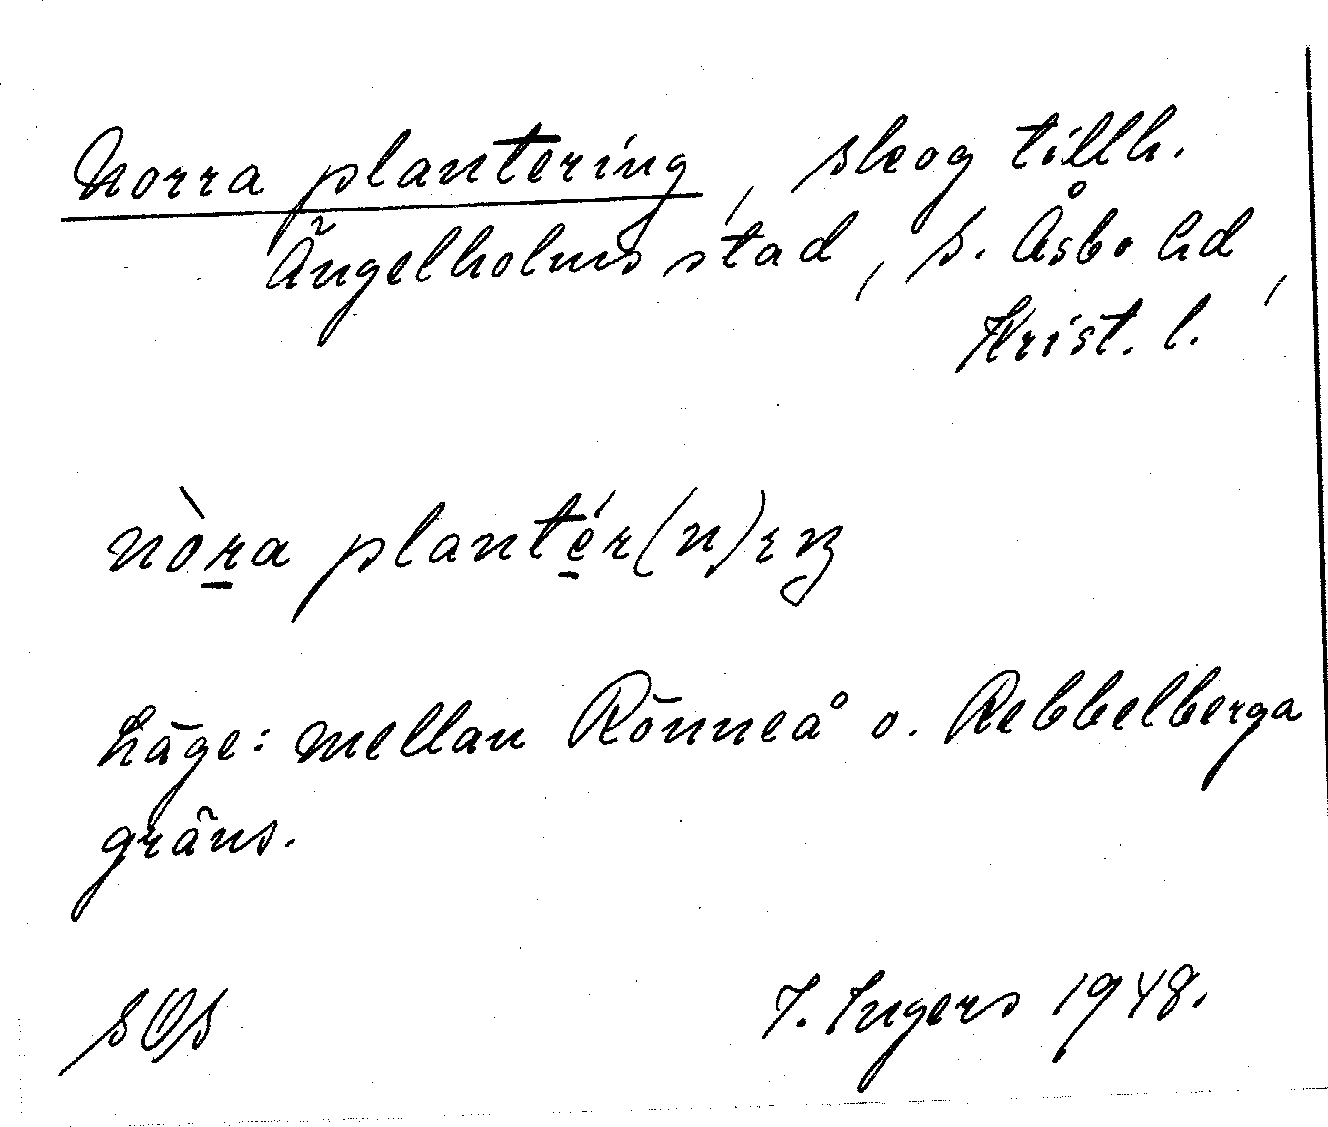 Norra plantering, skog tillh.
Ängelholms stad, S. Åsbo hd,
Krist. l.
nòra plantér(n)ɪŋ
Läge: mellan Rönneå o. Rebbelberga
gräns.
SOS
I. Ingers 1948.